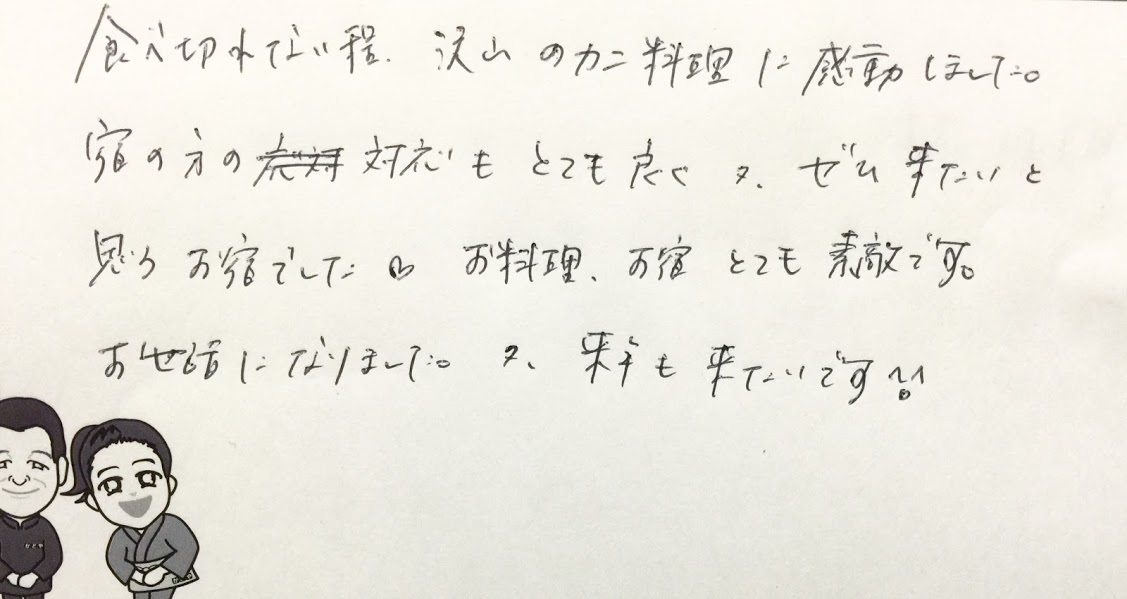 食べ切れない程、沢山のカニ料理に感動しました。
宿の方の対応もとても良く又、ゼヒ来たいと
思うお宿でした。お料理、お宿とても素敵です。
お世話になりました。又、来年も来たいです!!